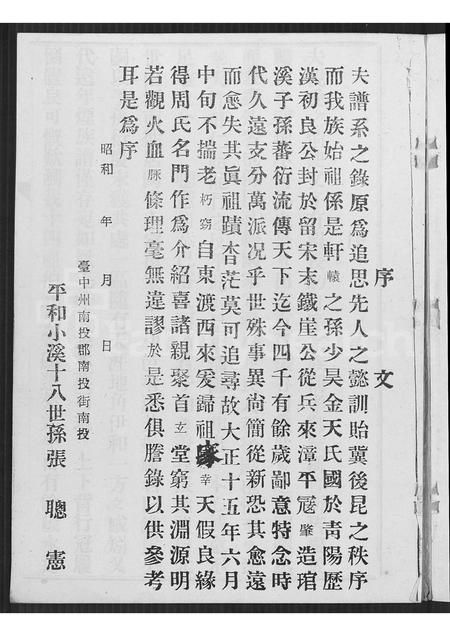 序文
夫譜系之錄原為追思先人之懿訓貽冀後昆之秩序
而我族始祖係是軒轅之孫少昊金天氏國於青陽歷
漢初良公封於留宋末鐵崖公從兵來漳平寇肇造琯
溪子孫蕃衍流傳天下迄今四千有餘歲鄙意特念時
代久遠支分萬派况乎世殊事異尚簡從新恐其愈遠
而愈失其眞祖蹟杳茫莫可追尋故大正十五年六月
中旬不揣老朽窃自東渡西來爰歸祖家幸天假良緣
得周氏名門作為介紹喜諸親聚首立堂窮其淵源明
若觀火血脉條理毫無違謬於是悉俱謄錄以供參考
耳是爲序
昭和年月日
臺中州南投郡南投街南投
平和小溪十八世孫張聰憲